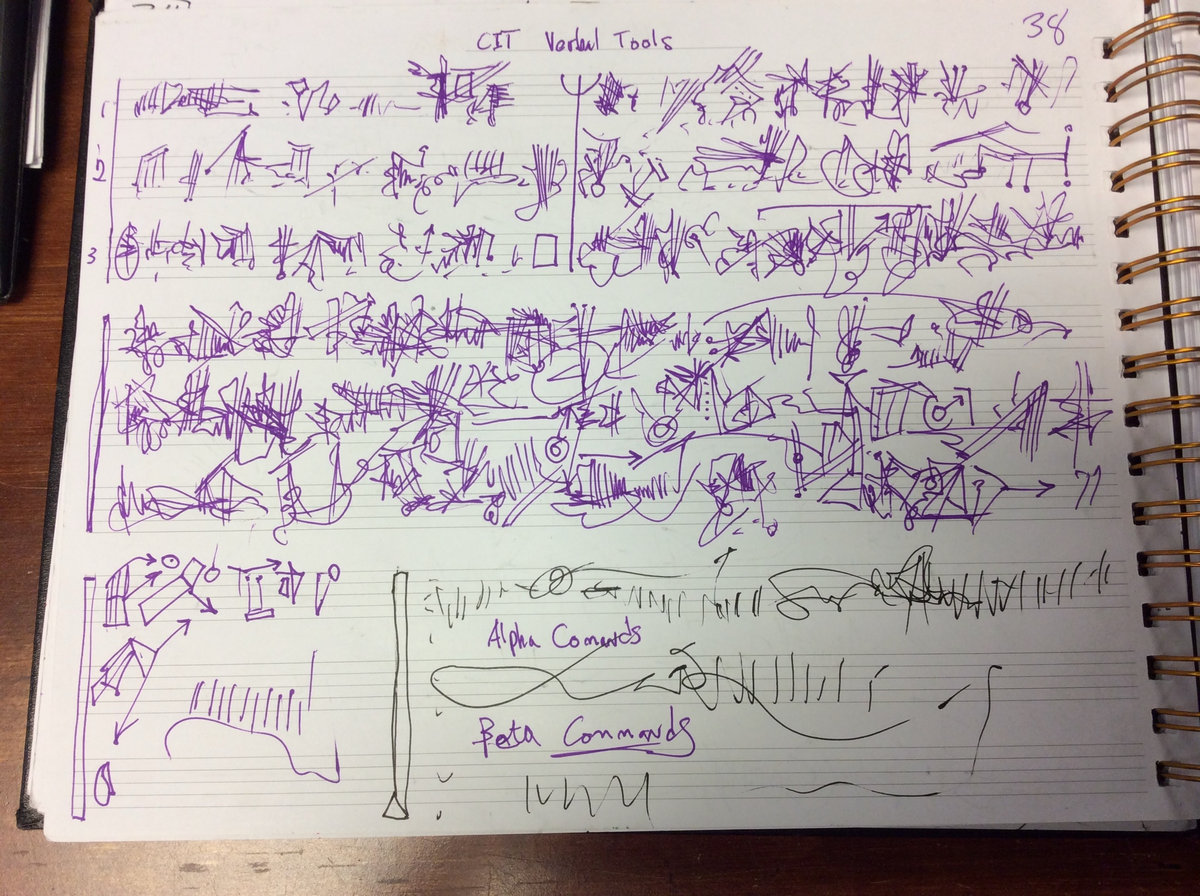 CIT Verbal Tools
38
1
2
3
71
Alpha Comands
Beta Commands